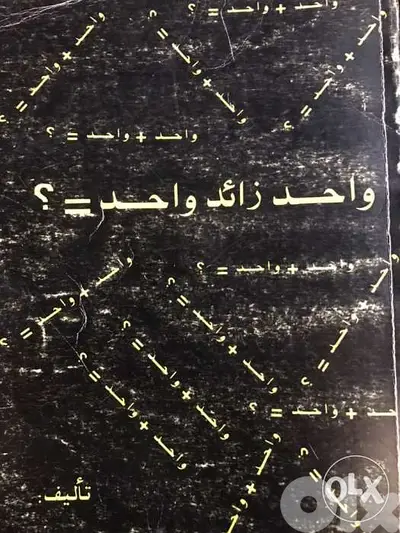 واحد + واحد = ؟
واحد + واحد = ؟
واحد + واحد = ؟
واحد + واحد = ؟
واحد + واحد = ؟
واحد زائد واحد = ؟
واحد + واحد = ؟
واحد + واحد = ؟
واحد + واحد = ؟
واحد + واحد = ؟
واحد + واحد = ؟
واحد + واحد = ؟
حد + واحد = ؟
واحد + واحد
= ؟
تأليف:
OLX